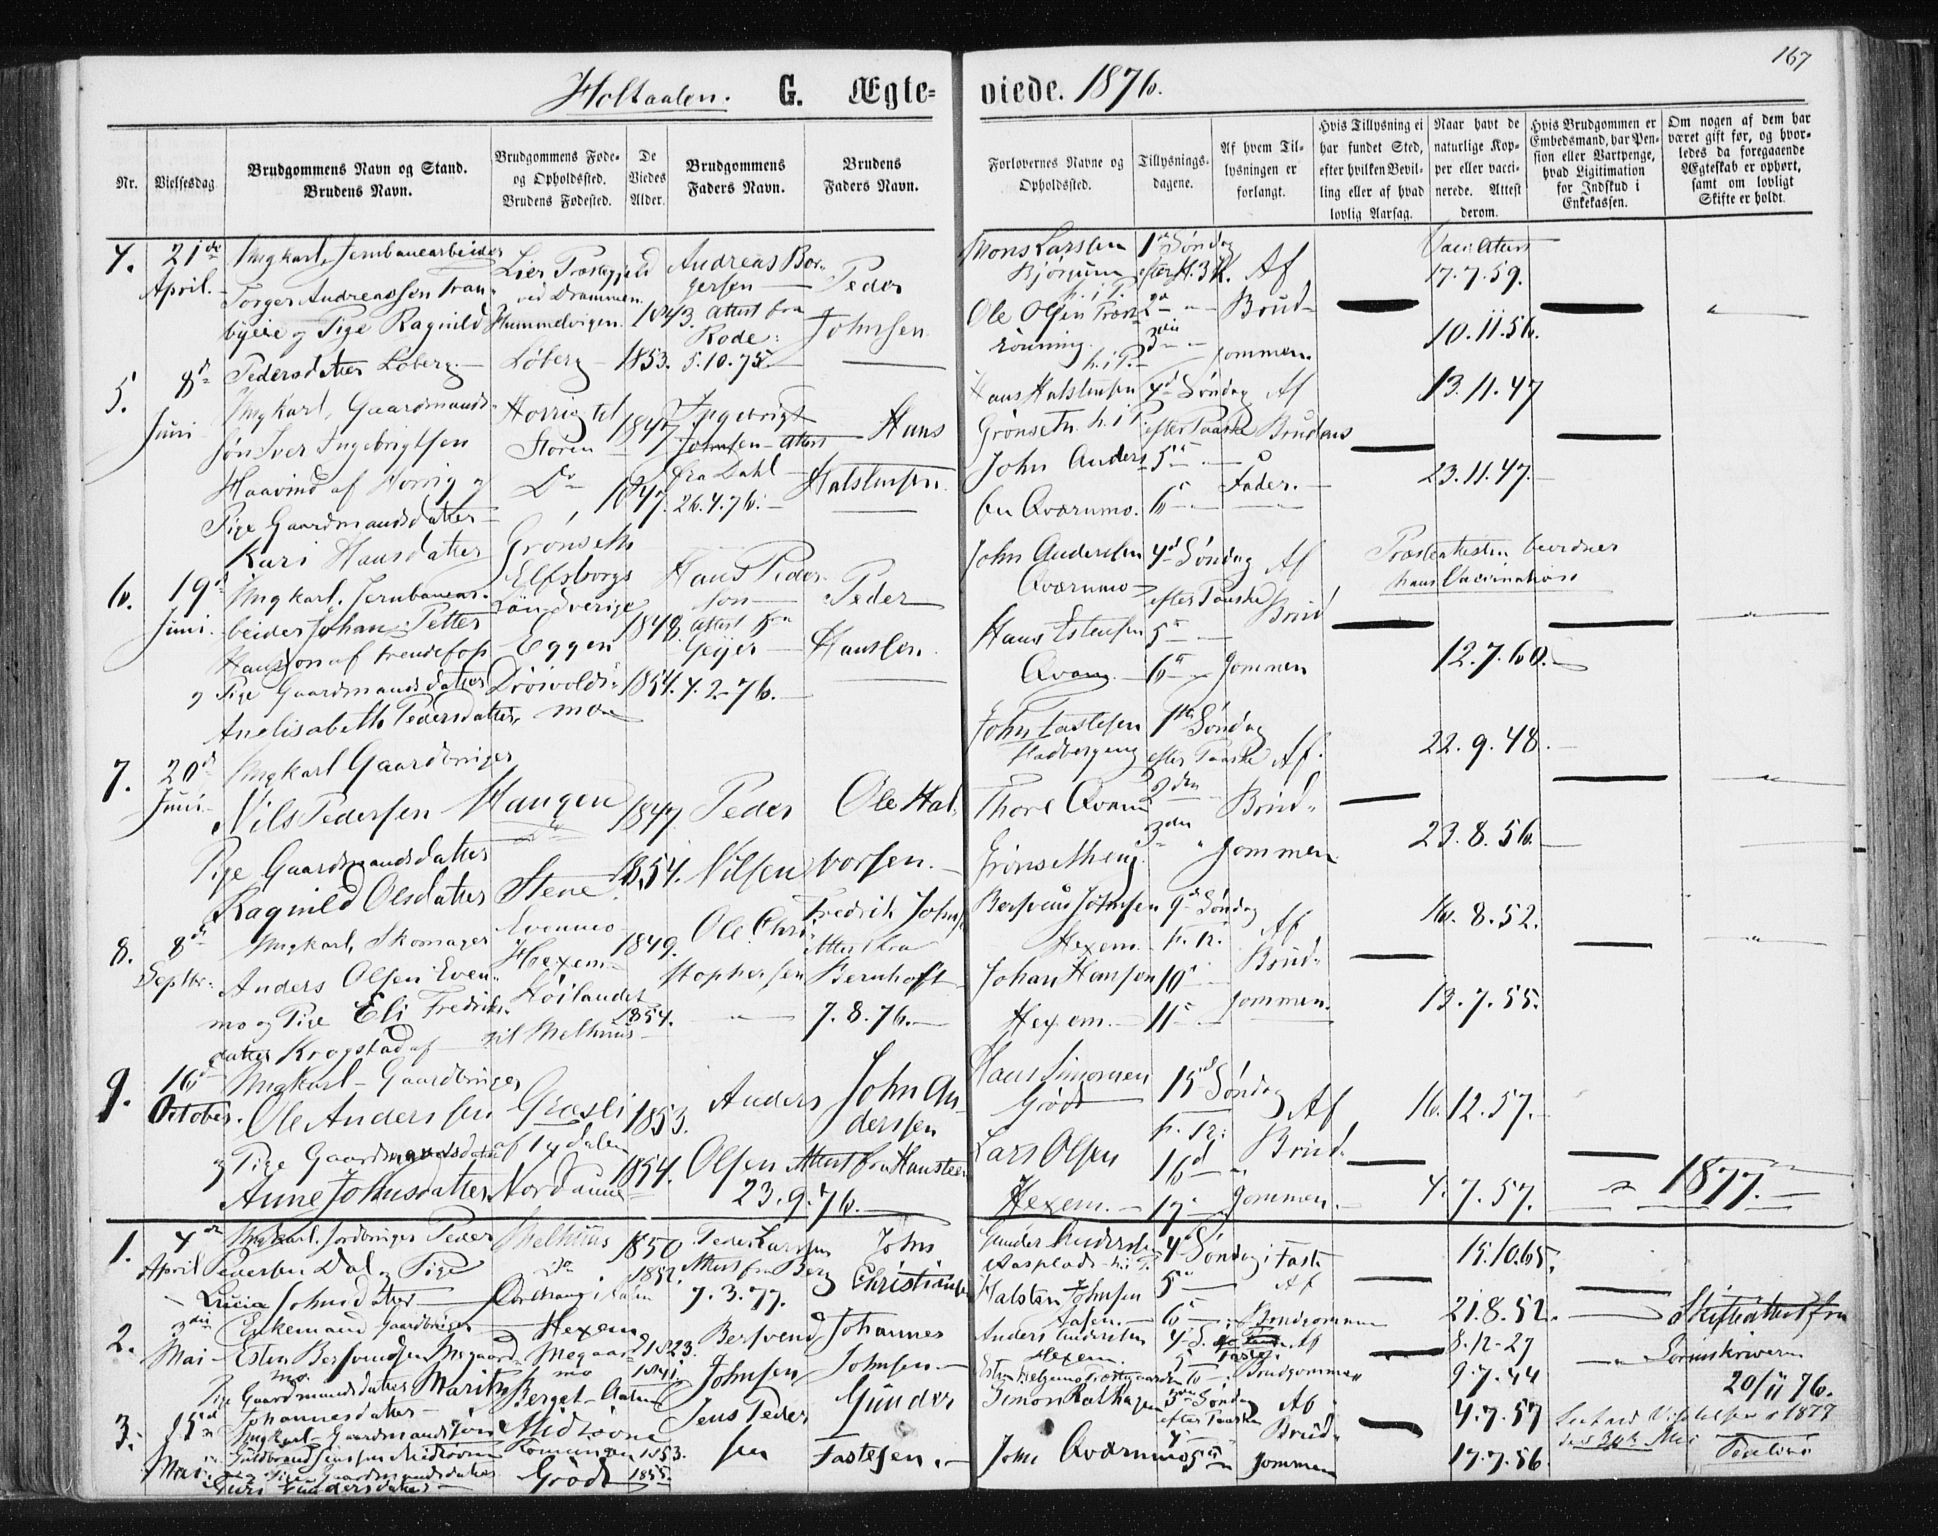 167
Holtaalen. G. Ægte= viede. 1876.
Nr.
Vielsesdag
Brudgommens Navn og Stand.
Brudens Navn.
Brudgommens Føde-
og Opholdssted.
Brudens Fødested.
De
Viedes
Alder.
Brudgommens
Faders Navn.
Brudens
Faders Navn.
Forlovernes Navne og
Opholdssted.
Tillysnings-
dagene.
Af hvem Til-
lysningen er
forlangt.
Hvis Tillysning ei
har fundet Sted,
efter hvilken Bevil-
ling eller af hvad
lovlig Aarsag.
Naar havt de
naturlige Kop-
per eller vacci-
nerede. Attest
derom.
Hvis Brudgommen er
Embedsmand, har Pen-
sion eller Vartpenge,
hvad Legitimation
for Indskud i
Enkekassen.
Om nogen af dem har
været gift før, og hvor-
ledes da foregaaende
Ægteskab er ophørt,
samt om lovligt
Skifte er holdt.
4.
21de
April.
Ungkarl, Jernbanearbeider
Torger Andreassen Tran-
byeie og Pige Ragnild
Pedersdatter Løberg
Lier Præstegjeld
ved Drammen.
Hummelvigen.
Løberg
1843.
1853.
Andreas Bor-
gersen
Attest fra
Rode:
5.10.75
Peder
Johnsen
Mons Larssen
Bjørgum
h. i P.
Ole Olsen Træn-
rønning.
h. i P.
1ste Søndag
efter H. 3 K.
2den
3die
Af
Brud-
gommen.
Vacc. Attest
17.7.59.
10.11.56.
5.
8de
Juni
Ungkarl, Gaardmands-
søn Iver Ingebrigtsen
Haavind af Horrig og
Pige Gaardmandsdatter
Kari Hansdatter
Horrig til
Støren
Do
Grønseth
1847
1847.
Ingebrigt
Johnsen - Attest
fra Dahl
26.4.76.
Hans
Halstensen
Hans Halstensen
Grønseth h. i P.
John Anders-
sen Qværnmo.
4de Søndag
efter Paaske
5te
6te
Af
Brudens
Fader.
13.11.47
23.11.47.
6.
19de
Juni.
Ungkarl, Jernbanear-
beider Johan Petter
Hansson af
og Pige Gaardmandsdatter
Anelisabeth Pedersdatter
Elfsborgs
Län Sverige
Eggen
Drøivolds-
mo
1848
1854.
Hans Peder-
son
Attest fra
Geijer
4.2.76.
Peder
Hanssen
John Anderssen
Qværnmo
Hans Estensen
Qvam.
4de Søndag
efter Paaske
5te
6te
Af
Brud
gommen
Præsteattesten bevidner
hans Vaccination
12.7.60.
7.
20de
Juni
Ungkarl Gaardbruger
Nils Pedersen
Pige Gaardmandsdatter
Ragnild Olsdatter
Haugen
Stene
1847
1854.
Peder
Nilsen
Ole Hal-
vorsen.
John Fastesen
Thore Qvam
Grønsetheng
1ste Søndag
efter Paaske
2den
3die
Af.
Brud-
gommen
22.9.48.
23.8.56.
8.
8de
Septbr.
Ungkarl, Skomager
Anders Olsen Even-
mo og Pige Eli Fredriks-
datter Krogstad af
Evenmo
Hexem
Høilandet
til Melhuus
1849.
1854.
Ole Chri-
stophersen
Fredrik Johns.
Attest fra
Bernhoft
7.8.76.
Bersvend Johnsen
Hexem
Johan Hansen
Hexem.
9de Søndag
10
11
Af
Brud-
gommen.
16.8.52.
13.7.55.
9.
16de
October.
Ungkarl - Gaardbruger
Ole Anderssen
og Pige Gaardmandsdatter
Anne Johnsdatter
Græsli
af Tydalen
Nordaune
1853.
1854.
Anders
Olsen
John An-
derssen
Attest fra Hansteen
23.9.76.
Hans Simonsen
Grødt
Lars Olsen
Hexem.
15de Søndag
16de
17
Af
Brud-
gommen.
16.12.57.
4.7.57.
1877.
1.
4de
April
Ungkarl, Jordbruger Peder
Pedersen Dal og Pige
Lucia Johnsdatter
Melhuus
1850
1852.
Peder Larssen
Attest fra Berg
7.3.77.
John
Christiansen
Gunder Anderssen
Aasplads h. i P.
Halsten Johnsen
Aasen.
4de Søndag i Faste
5te
6te
Af
Brudgommen
15.10.65.
21.8.52.
2.
3die
Mai
Enkemand Gaardbruger
Esten Bersvendsen Megaard-
mo
Pige Gaardmandsdatter Marith
Johannesdatter
Hexem
Megaards-
mo
Berget - Aalen
1823.
1841
Bersvend
Johnsen
Johannes
Johnsen.
Anders Anderssen
Hexem.
Brudgommen
8.12.27
9.7.44
Skifteattest fra
Sorenskriveren
20/11 76.
3.
15de
Mai
Ungkarl - Gaardmandssøn
Guldbrand Jenssen Midtaune
og Pige Gaardmandsdatter
Guri Gundersdatter
Midtaune
Grødt
1853.
1855.
Jens Peder
sen
Gunder
Fastesen.
Simon Rathagen
John Qværnmo
3die Søndag
efter Paaske
4
5te
Af
Brud-
gommen
4.7.57
17.7.56.